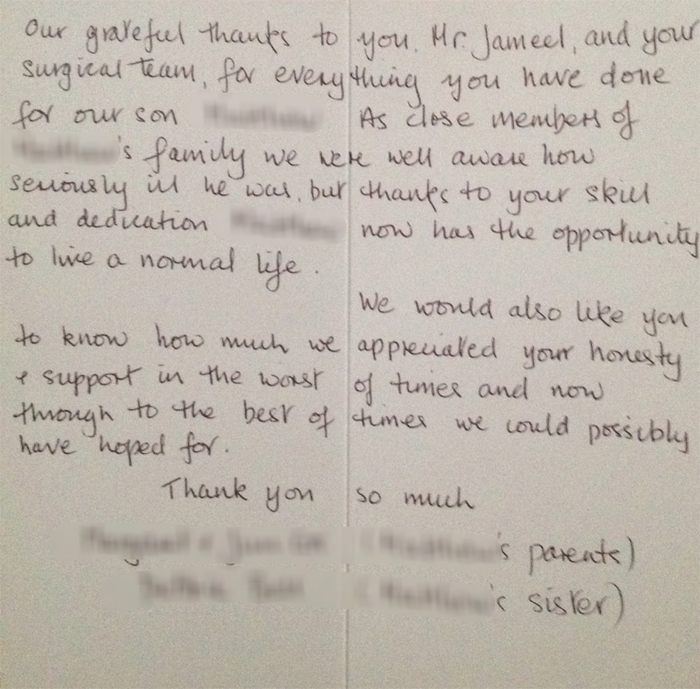 Our grateful thanks to you, Mr. Jameel, and your
surgical team, for everything you have done
for our son As close members of
's family we were well aware how
seriously ill he was, but thanks to your skill
and dedication now has the opportunity
to live a normal life.
We would also like you
to know how much we appreciated your honesty
+ support in the worst of times and now
through to the best of times we could possibly
have hoped for.
Thank you so much
's parents)
's sister)